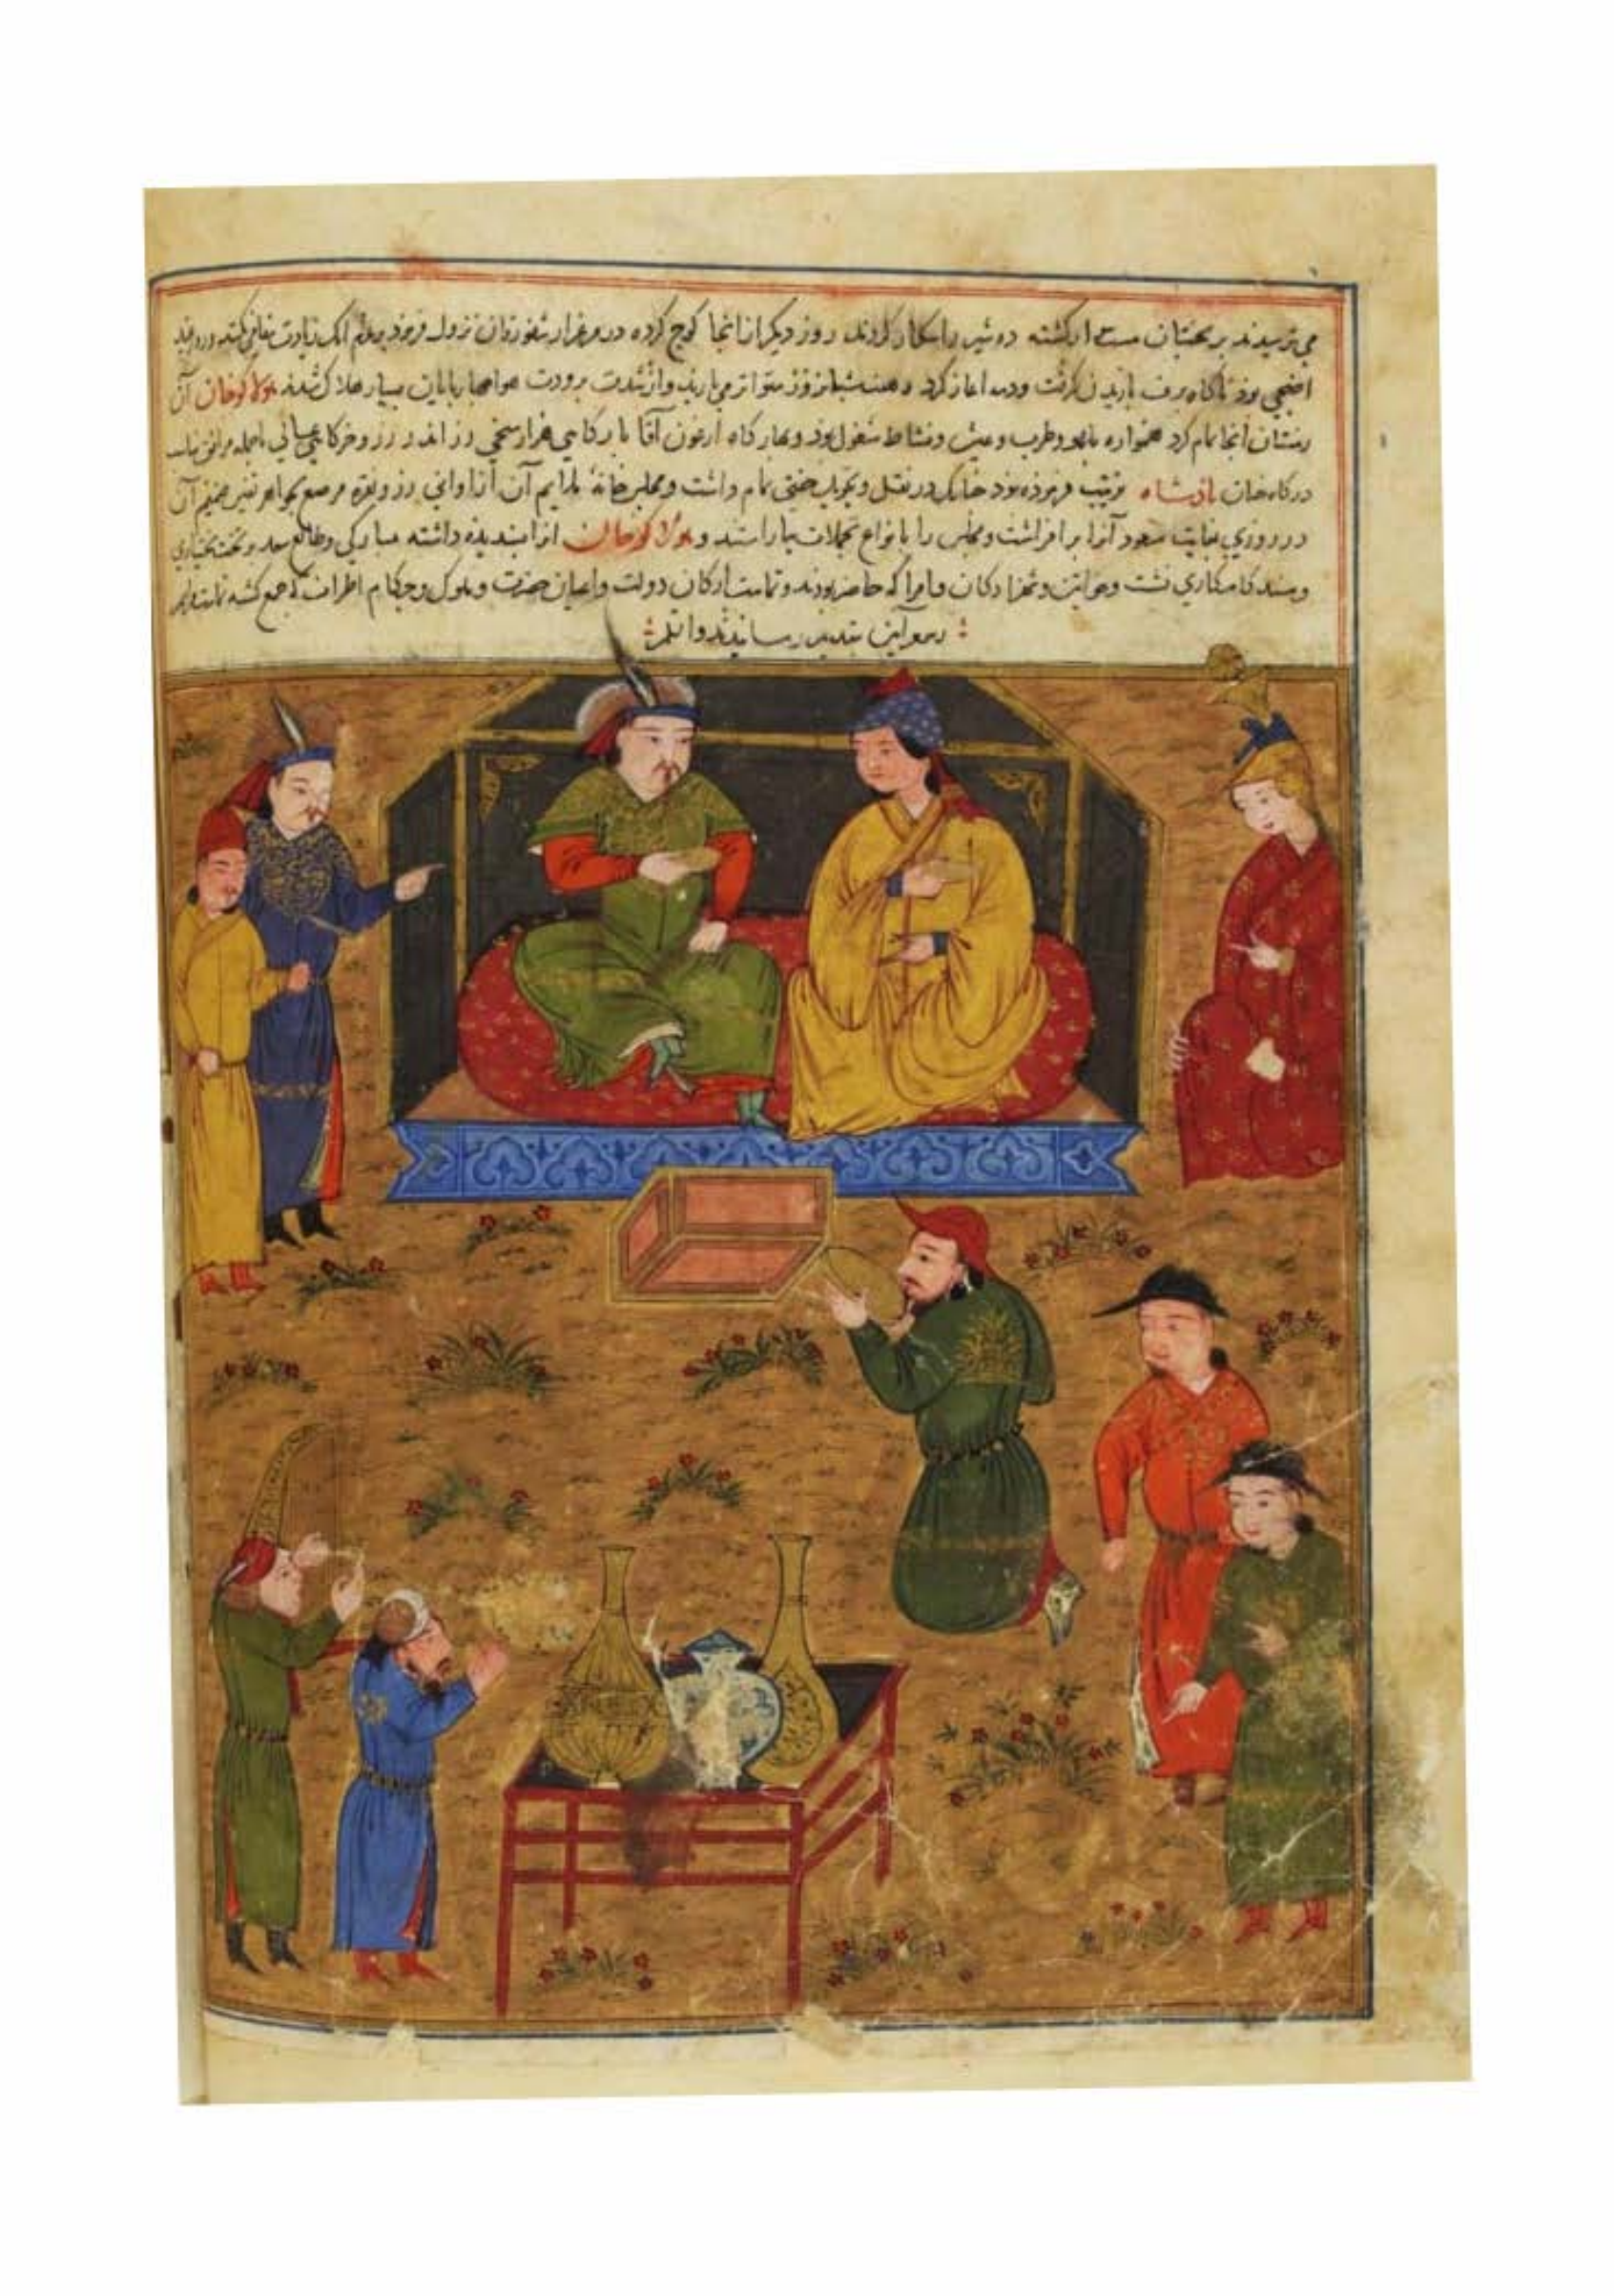 می ترسیدند بر بختیان مست ارکشته ده شیر را شکار کردند روز دیگر از انجا کوچ کرده در مرغزار شفورقان نزول فرمود بر عزم آنک زیادت مقامی
اضحی بود ناکاه برف باریدن کرفت ودمه اغاز کرد و هفت شبانروز متواتر می بارید واز شدت برودت هوا جهارپایان بسیار هلاک شدند هولاکوخان آن
زمستان انجا مقام کرد همواره بلهو وطرب وعیش ونشاط مشغول بود و بهار کاه ارغون آقا بارکاهی هزار میخی زر اندر زر وخرکاهی عالی
درکاه خان پادشاه ترتیب فرموده بود چنانک در نقل و تحویل خفتی تمام داشت ومجلس خانهٔ ملایم آن از اوانی زر ونقره مرصع بجواهر نفیس ضمیم آن
در روزی بغایت مسعود آنرا بر افراشت ومجلس را بانواع تجملات بیاراستند و هولاکوخان انرا پسندیده داشته مبارکی وطالع سعد و تخت بختیاری
ومسند کامکاری نشست وخواتین وشهزادکان وامرا که حاضر بودند وتمامت ارکان دولت واعیان حضرت وملوک وحکام اطراف که جمع کشته
رسوم آیین بتقدیم رسانیدند والله اعلم